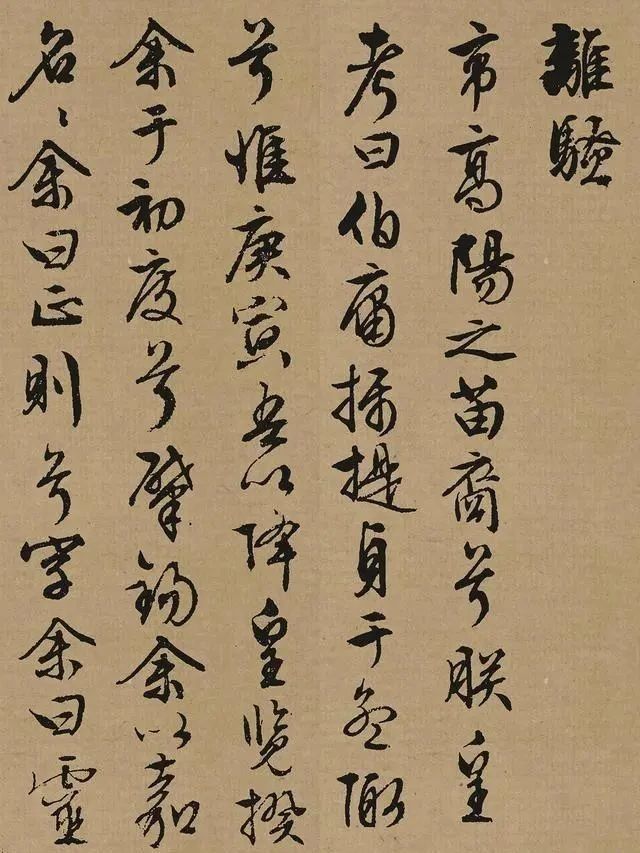 離騷
帝高陽之苗裔兮朕皇
考曰伯庸攝提貞于孟陬
兮惟庚寅吾以降皇覽揆
余于初度兮肇錫余以嘉
名〻余曰正則兮字余曰靈